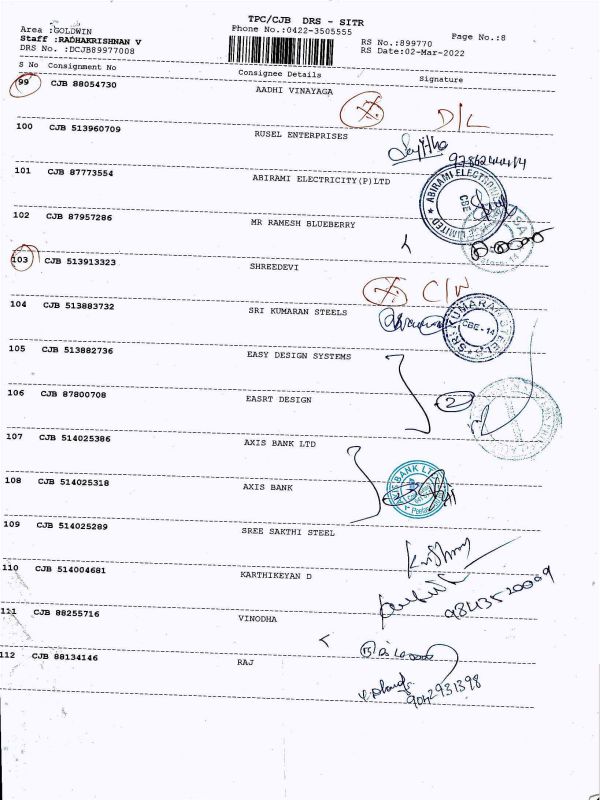 TPC/CJB DRS - SITR
Area :GOLDWIN
Phone No.:0422-3505555
Page No.:8
Staff :RADHAKRISHNAN V
RS No.:899770
DRS No. :DCJB89977008
RS Date:02-Mar-2022
S No Consignment No Consignee Details Signature
99 CJB 88054730 AADHI VINAYAGA
D/L
100 CJB 513960709 RUSEL ENTERPRISES
101 CJB 87773554 ABIRAMI ELECTRICITY(P)LTD
102 CJB 87957286 MR RAMESH BLUEBERRY
103 CJB 513913323 SHREEDEVI
104 CJB 513883732 SRI KUMARAN STEELS
SRI KUMARAN STEELS
CBE - 14
105 CJB 513882736 EASY DESIGN SYSTEMS
106 CJB 87800708 EASRT DESIGN
2
107 CJB 514025386 AXIS BANK LTD
108 CJB 514025318 AXIS BANK
109 CJB 514025289 SREE SAKTHI STEEL
110 CJB 514004681 KARTHIKEYAN D
9843520009
111 CJB 88255716 VINODHA
112 CJB 88134146 RAJ
9042931398